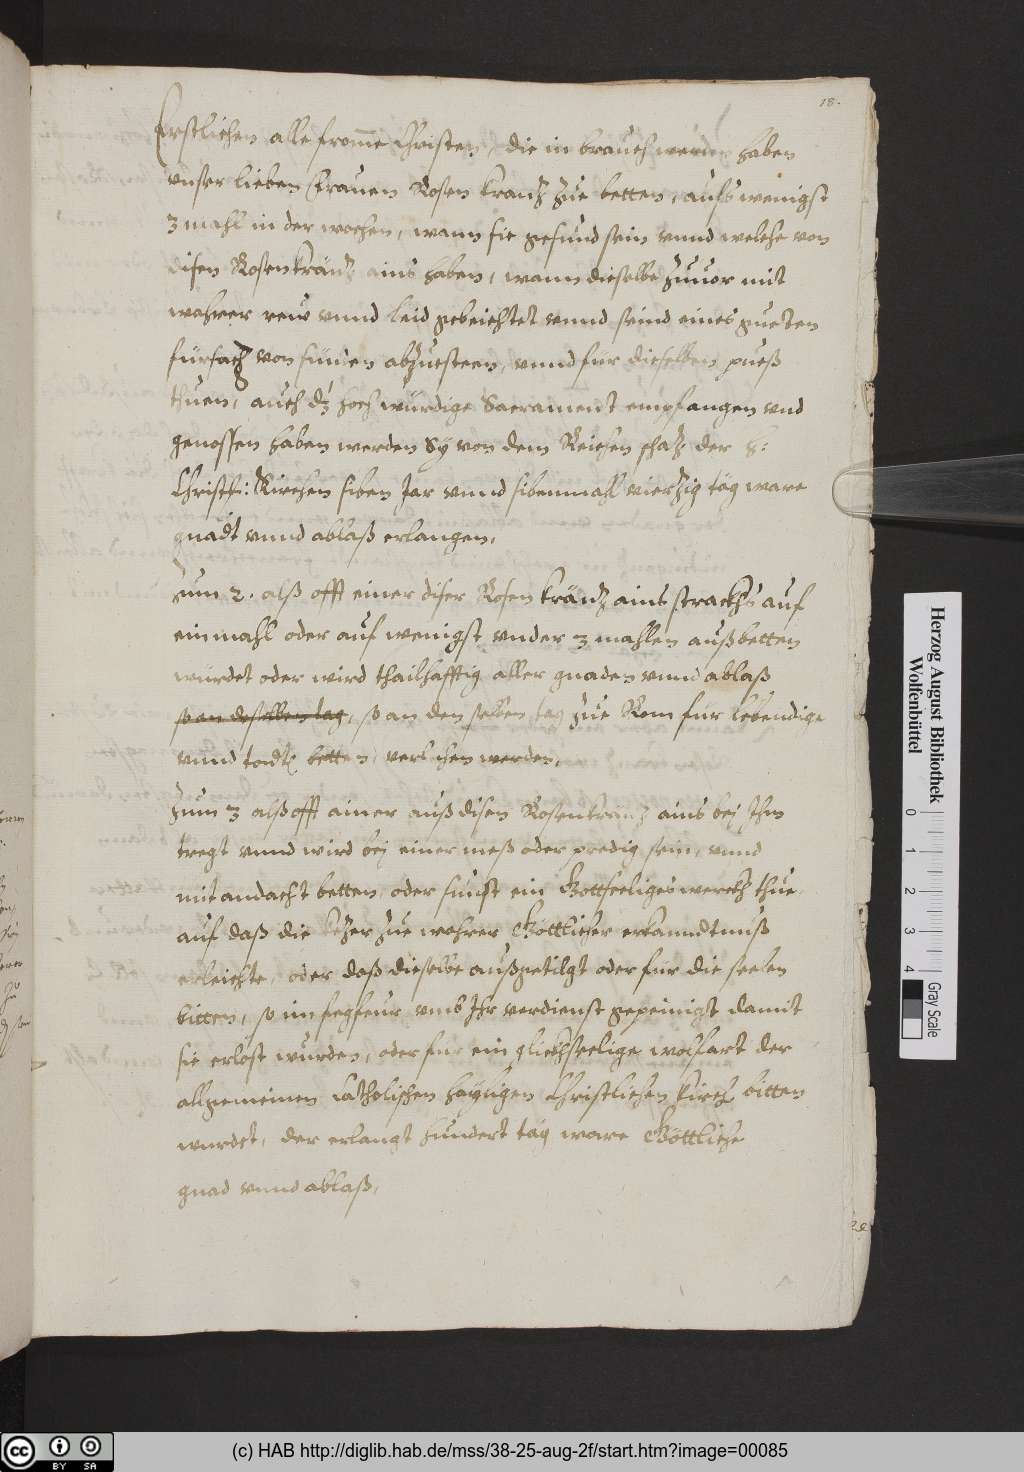 18.
Erstlichen alle frome Christen, die in brauch werden haben
vnser lieben Frauen Rosen krantz zue betten, aufs wenigst
3 mahl in der wochen, wann sie gesund sein vnnd welche von
disen Rosenkräntz ains haben, wann dieselbe zuuor mit
wahrer rew vnnd leid gebeichtet vnnd seind eines gueten
fürsatz von sünden abzuesteen, vnnd fur dieselben pueß
thuen, auch dz hochwürdige Sacrament empfangen vnd
genossen haben werden Sÿ von dem Reichen schatz der h:
Christl: Kirchen siben Jar vnnd sibenmahl viertzig täg ware
gnadt vnnd ablaß erlangen,
Zum 2. alß offt einer diser Rosen kräntz ains strackhs auf
einmahl oder auf wenigst vnder 3 mahlen außbetten
würdet oder wird thailhafftig aller gnaden vnnd ablaß
so an deselben tag, so an den selben tag zue Rom für lebendige
vnnd todte betten, verlichen werden,
Zum 3 alß offt ainer auß disen Rosenkrantz ains bej Ihm
tregt vnnd wird bej einer meß oder predig sein, vnnd
mit andacht betten, oder sunst ein Gottseeliges werckh thue
auf daß die ketzer zue wahrer Göttlicher erkanndtnuß
erleichte, oder daß dieselbe außgetilgt oder für die seelen
bitten, so im fegfeur vmb Ihr verdienst gepeinigt damit
sie erlöst wurden, oder für ein glickhseelige wolfart der
allgemeinen Catholischen hayligen Christlichen kirch bitten
wurdet, der erlangt hundert täg ware Göttliche
gnad vnnd ablaß,
Herzog August Bibliothek
Wolfenbüttel
0 1 2 3 4
Gray Scale
cc BY SA
(c) HAB http://diglib.hab.de/mss/38-25-aug-2f/start.htm?image=00085